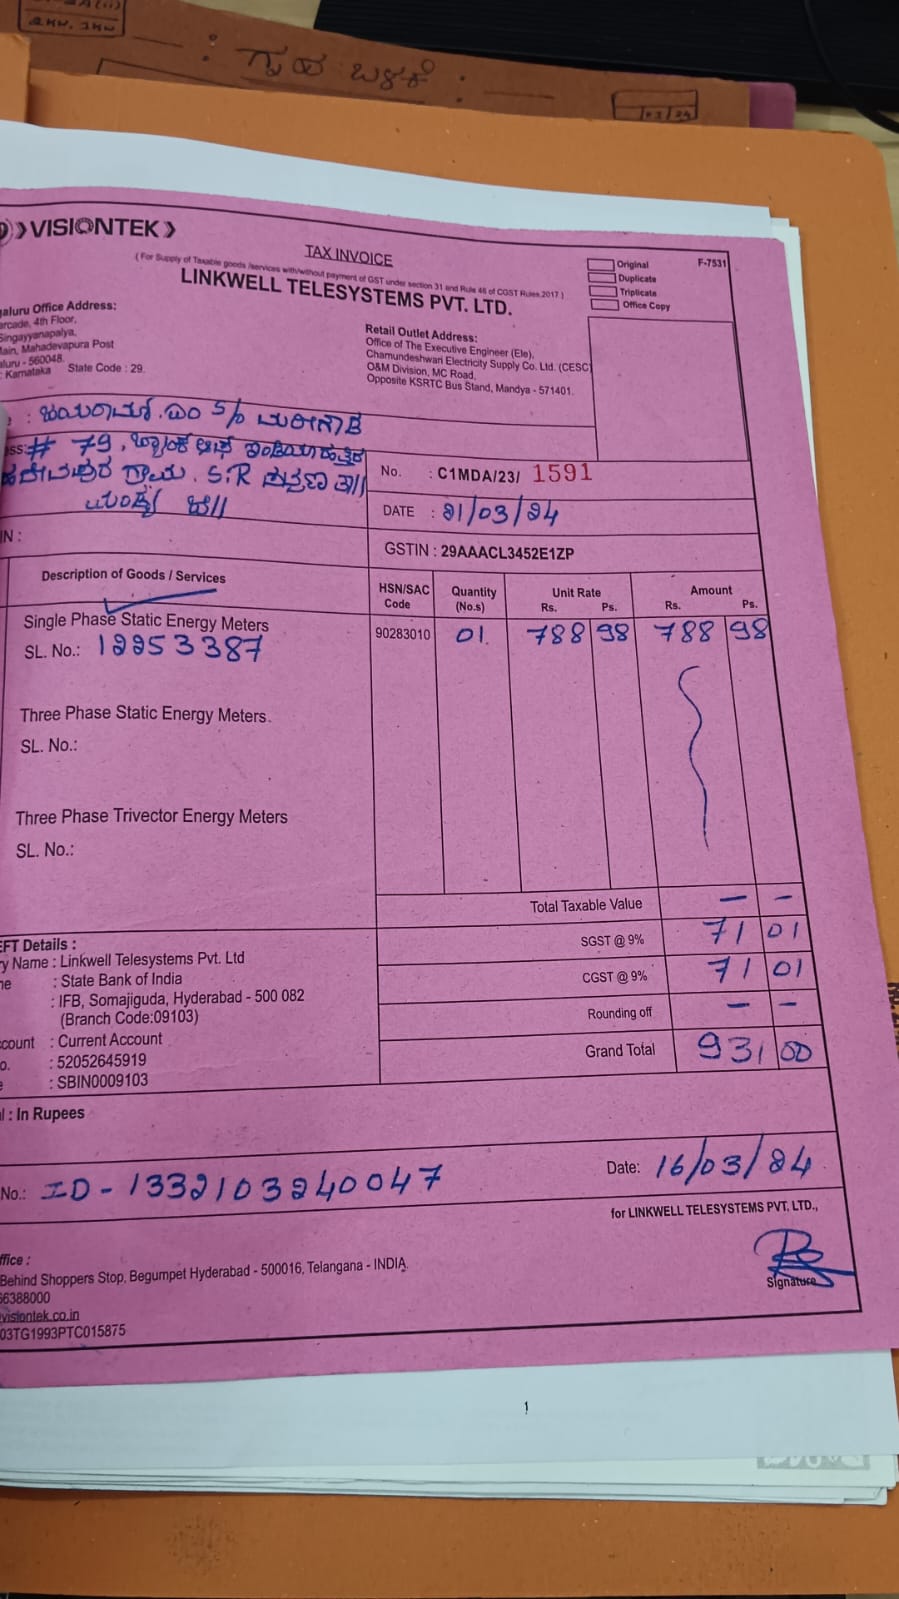 ಗೃಹ ಬಳಕೆ :
VISIONTEK
TAX INVOICE
( For Supply of Taxable goods /services with/without payment of GST under section 31 and Rule 46 of CGST Rules,2017 )
LINKWELL TELESYSTEMS PVT. LTD.
Original
Duplicate
Triplicate
Office Copy
F-7531
galuru Office Address:
arcade, 4th Floor,
Singayyanapalya,
Main, Mahadevapura Post
aluru - 560048.
: Karnataka State Code : 29.
Retail Outlet Address:
Office of The Executive Engineer (Ele),
Chamundeshwari Electricity Supply Co. Ltd. (CESC)
O&M Division, MC Road,
Opposite KSRTC Bus Stand, Mandya - 571401.
: ಜಯರಾಮ್. ಎಂ S/o
ess: # 79,
ಗ್ರಾಮ. S.R ಪಟ್ಟಣ ತಾ||
ಮಂಡ್ಯ ಜಿ||
No. : C1MDA/23/ 1591
DATE : 21/03/24
IN :
GSTIN : 29AAACL3452E1ZP
Description of Goods / Services
HSN/SAC Code
Quantity (No.s)
Unit Rate Rs. Ps.
Amount Rs. Ps.
Single Phase Static Energy Meters 90283010 01. 788 98 788 98
SL. No.: 12253387
Three Phase Static Energy Meters.
SL. No.:
Three Phase Trivector Energy Meters
SL. No.:
Total Taxable Value — —
SGST @ 9% 71 01
CGST @ 9% 71 01
Rounding off — —
Grand Total 931 00
EFT Details :
ry Name : Linkwell Telesystems Pvt. Ltd
ne : State Bank of India
: IFB, Somajiguda, Hyderabad - 500 082
(Branch Code:09103)
ccount : Current Account
o. : 52052645919
e : SBIN0009103
l : In Rupees
No.: ID - 1332103240047
Date: 16/03/24
for LINKWELL TELESYSTEMS PVT. LTD.,
Signature
ffice :
Behind Shoppers Stop, Begumpet Hyderabad - 500016, Telangana - INDIA.
66388000
visiontek.co.in
03TG1993PTC015875
1